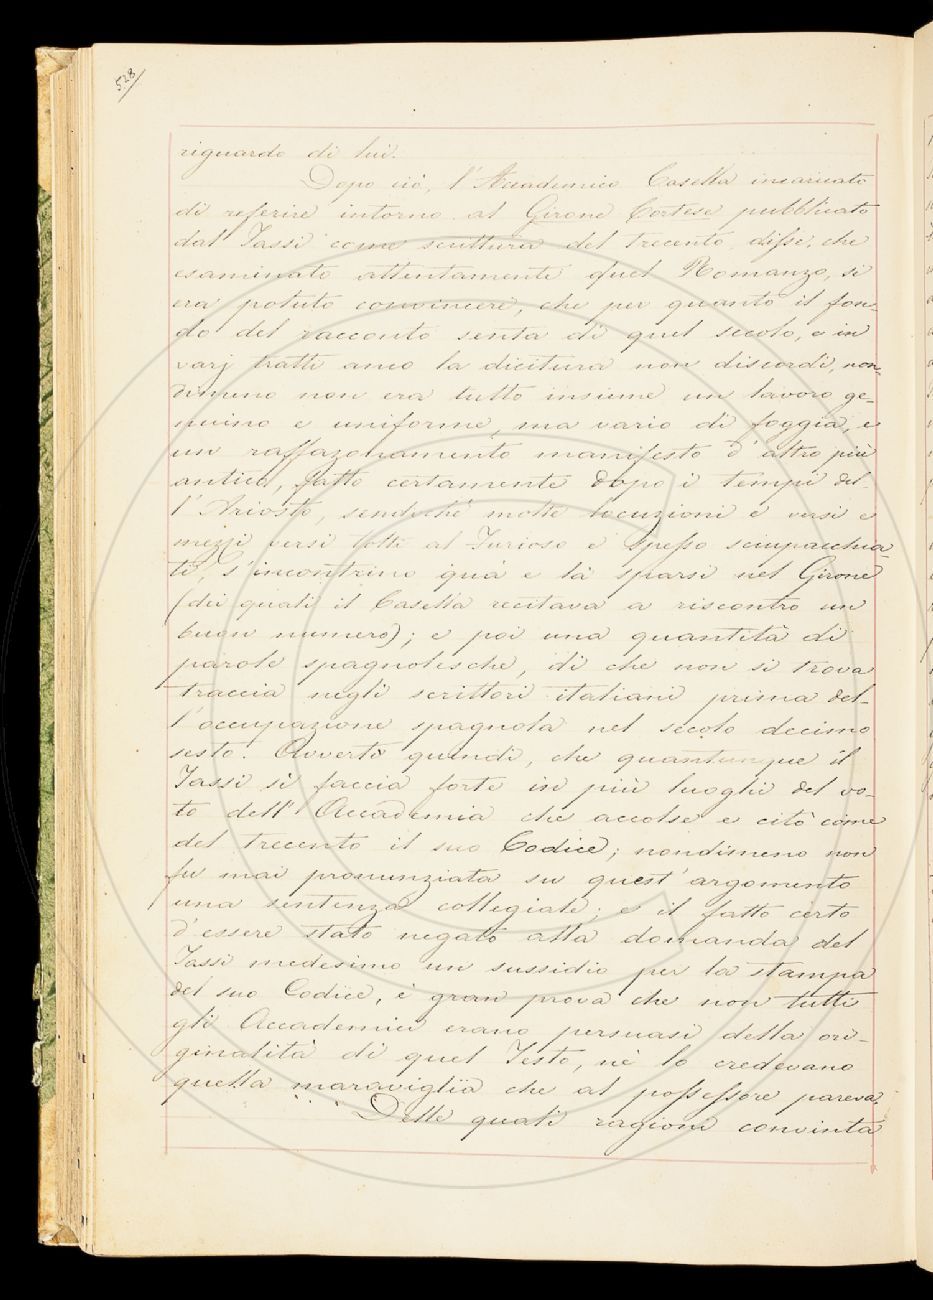 528
riguardo di lui.
Dopo ciò, l'Accademico Casella incaricato
di referire intorno al Girone Cortese pubblicato
dal Tassi come scrittura del trecento, disse, che
esaminato attentamente quel Romanzo, si
era potuto convincere, che per quanto il fon-
do del racconto senta di quel secolo, e in
varj tratti anco la dicitura non discordi, non-
dimeno non era tutto insieme un lavoro ge-
nuino e uniforme, ma vario di foggia, e
un raffazonamento manifesto d'altro più
antico, fatto certamente dopo i tempi del-
l'Ariosto, sendoché molte locuzioni e versi e
mezzi versi tolti al Furioso e spesso sciupacchia-
ti, s'incontrino quà e là sparsi nel Girone
(dei quali il Casella recitava a riscontro un
buon numero); e poi una quantità di
parole spagnolesche, di che non si trova
traccia negli scrittori italiani prima del-
l'occupazione spagnola nel secolo decimo
sesto. Avvertì quindi, che quantunque il
Tassi si faccia forte in più luoghi del vo-
to dell'Accademia che accolse e citò come
del trecento il suo Codice; nondimeno non
fu mai pronunziata su quest'argomento
una sentenza collegiale; e il fatto certo
d'essere stato negato alla domanda del
Tassi medesimo un sussidio per la stampa
del suo Codice, è gran prova che non tutti
gli Accademici erano persuasi della ori-
ginalità di quel Testo, nè lo credevano
quella maraviglia che al possessore pareva.
Delle quali ragioni convinta